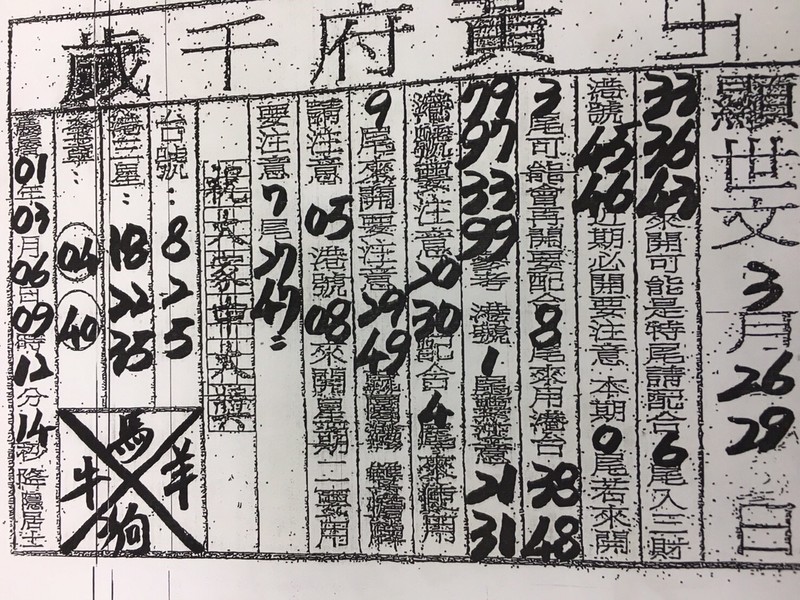 黃府千歲
顯世文3月26 29日
33 36 43來開可能是特尾請配合6尾入三財
港號45 46近期必開要注意 本期0尾若來開
3尾可能會再開要配合8尾來用港台38 48
79 97 33 99參考 港號1尾要注意21 31
港號要注意20 30配合4尾來使用
9尾來開要注意29 49
請注意05港號08來開星期二要用
要注意7尾27 47
祝大家中大獎
台號：8 2 5
港三星：18 22 35
04 40
馬
牛 羊
狗
01年03月06日09時12分14秒降隱居士